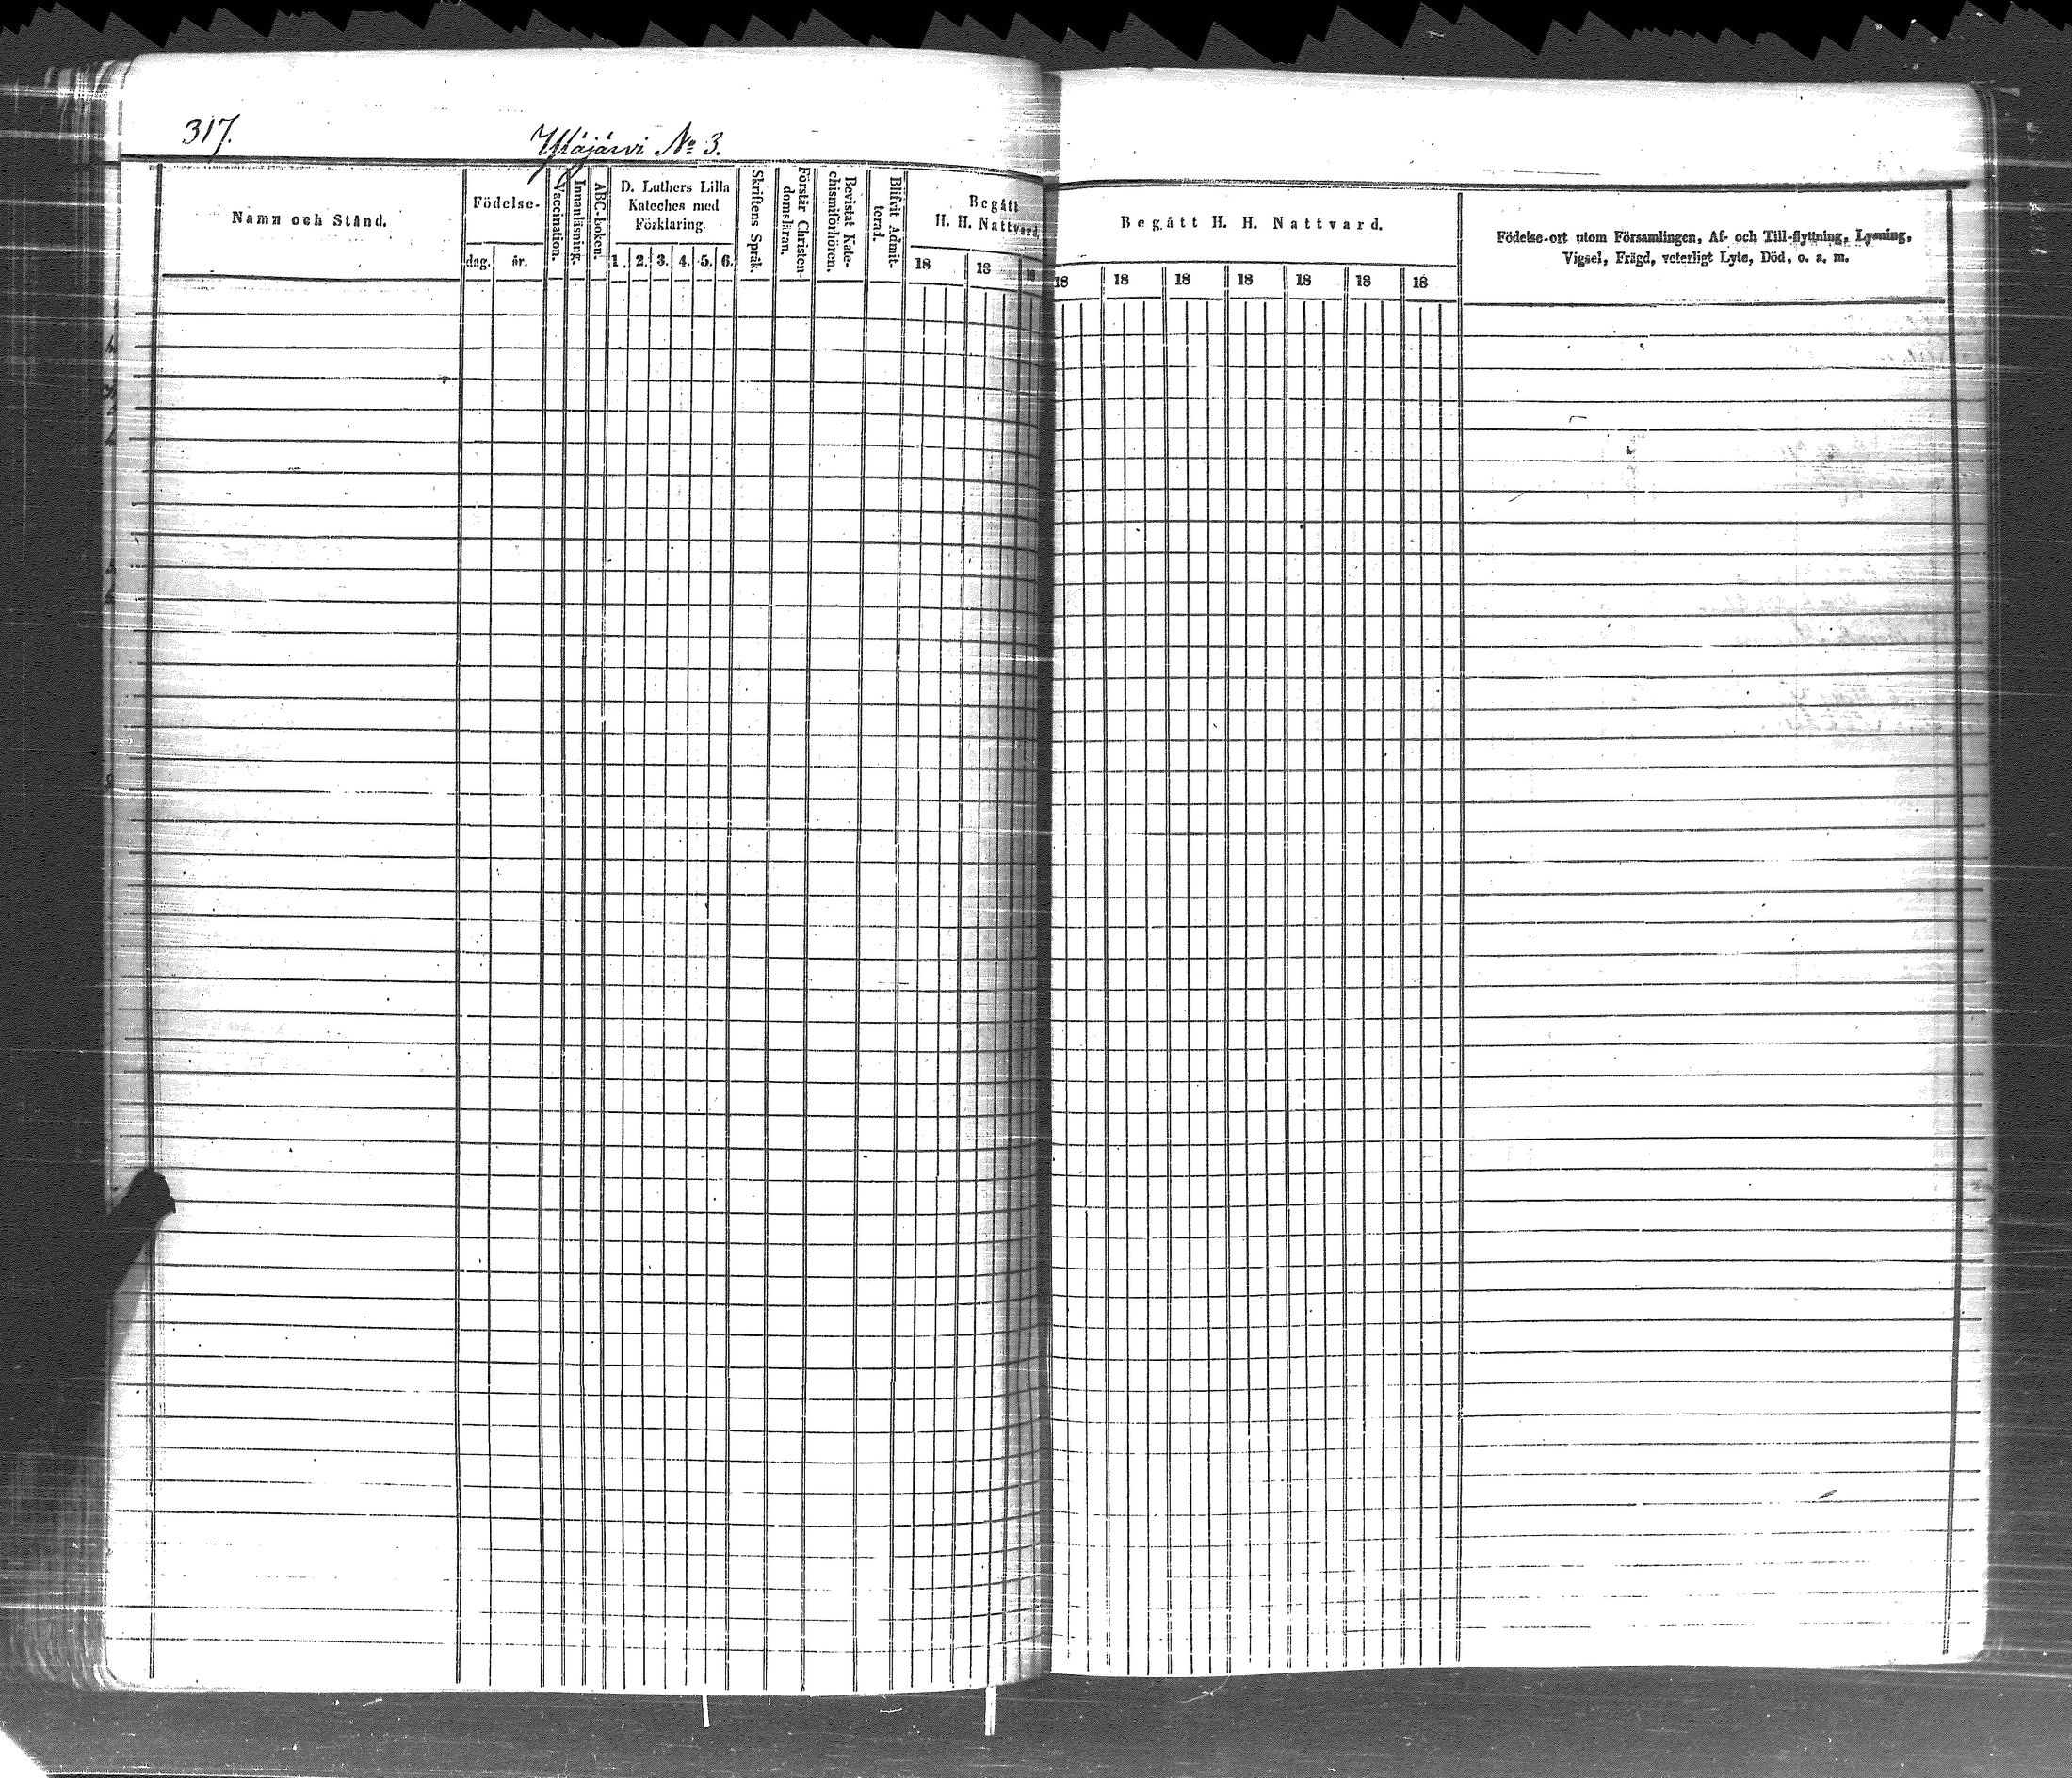 317.
Ylläjärvi No 3.
Namn och Stånd.
Födelse-
dag.
år.
Vaccination.
Innanläsning.
ABC-boken.
D. Luthers Lilla
Kateches med
Förklaring.
1. 2. 3. 4. 5. 6.
Skriftens Språk.
Förstår Christen-
domsläran.
Bevistat Kate-
chismiförhören.
Blifvit Admit-
terad.
Begått
H. H. Nattvard.
18 18 18
Begått H. H. Nattvard.
18 18 18 18 18 18 18
Födelse-ort utom Församlingen, Af- och Till-flyttning, Lysning,
Vigsel, Frägd, veterligt Lyte, Död, o. a. m.